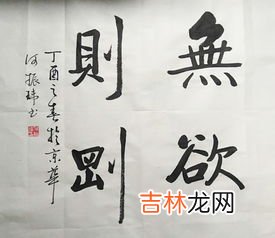 無欲
則剛
丁酉之春於京華
何振瑋書
吉林龙网